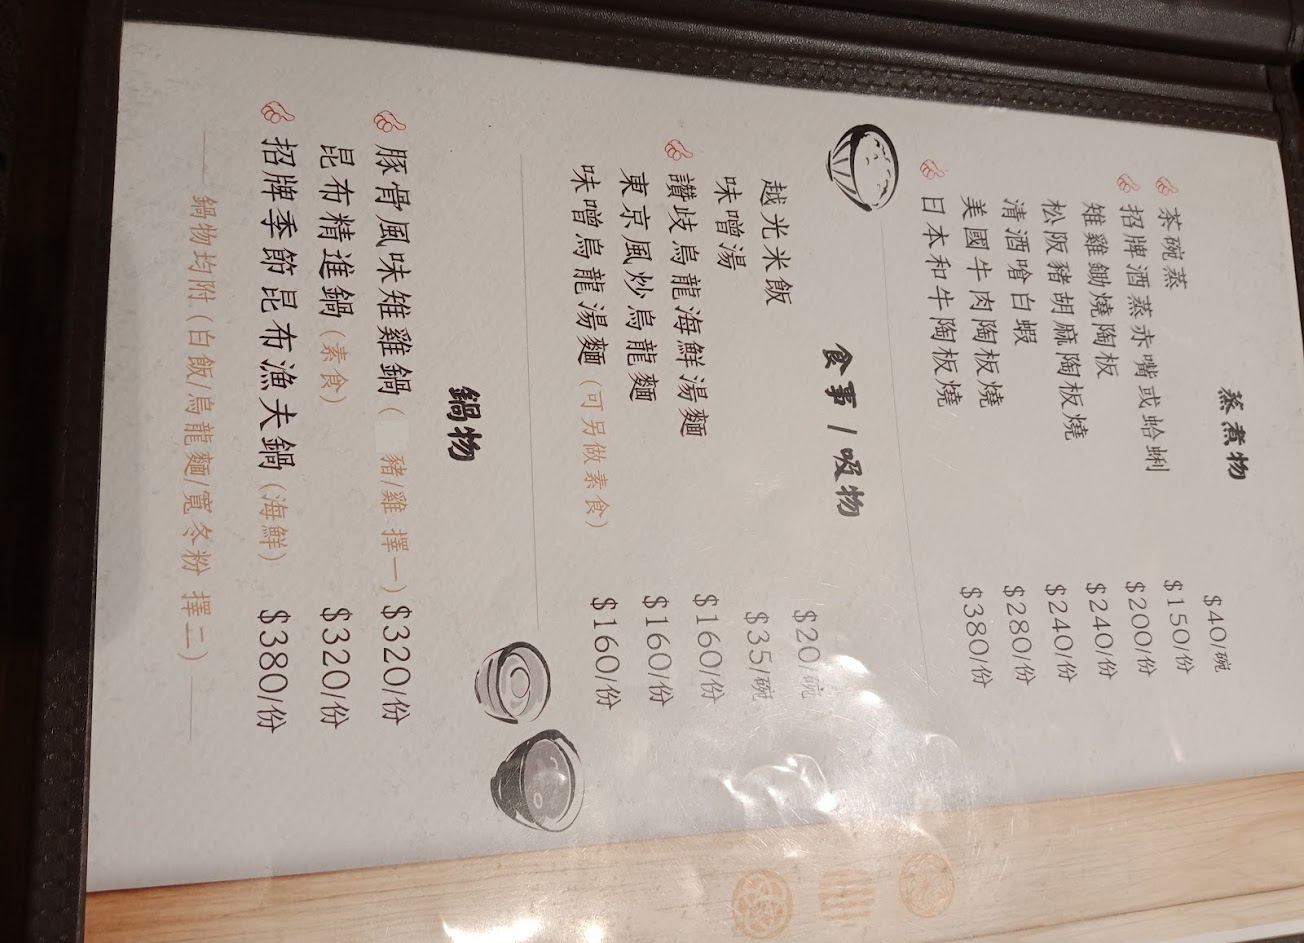 蒸煮物
茶碗蒸 $40/碗
招牌酒蒸赤嘴或蛤蜊 $150/份
雉雞鋤燒陶板 $200/份
松阪豬胡麻陶板燒 $240/份
清酒嗆白蝦 $240/份
美國牛肉陶板燒 $280/份
日本和牛陶板燒 $380/份
食事/吸物
越光米飯 $20/碗
味噌湯 $35/碗
讚岐烏龍海鮮湯麵 $160/份
東京風炒烏龍麵 $160/份
味噌烏龍湯麵(可另做素食) $160/份
鍋物
豚骨風味雉雞鍋( 豬/雞 擇一) $320/份
昆布精進鍋(素食) $320/份
招牌季節昆布漁夫鍋(海鮮) $380/份
鍋物均附(白飯/烏龍麵/寬冬粉 擇二)